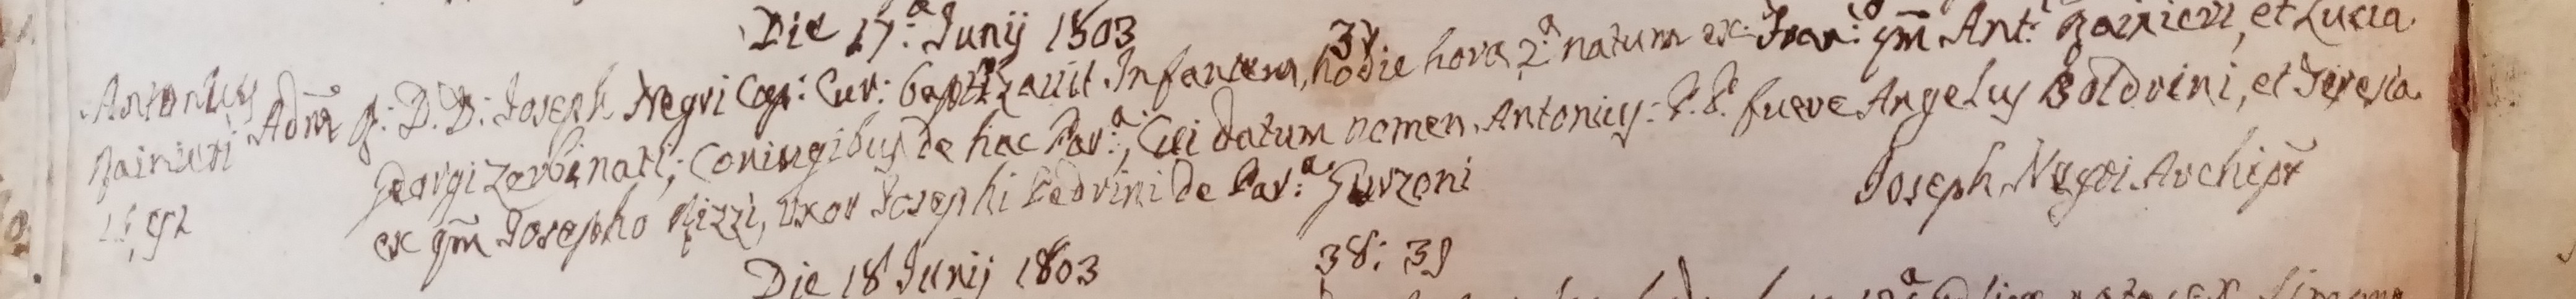 Die 17.ª Junij 1803
37
Antonius
Rainieri
Adm̄ R: D. D: Joseph Negri Cap: Cur: baptizavit Infantem, hodie hora 2.ª natum ex Fran: qm̄ Ant: Rainieri, et Lucia
Georgi Zerbinati, Coniugibus de hac Par:ª, Cui datum nomen Antonius: P. P. fuere Angelus Boldrini, et Teresia
ex qm̄ Josepho Rizzi, uxor Josephi Pedrini de Par:ª Gurzoni
Joseph Negri Archipr̄
Die 18 Junij 1803
38: 39